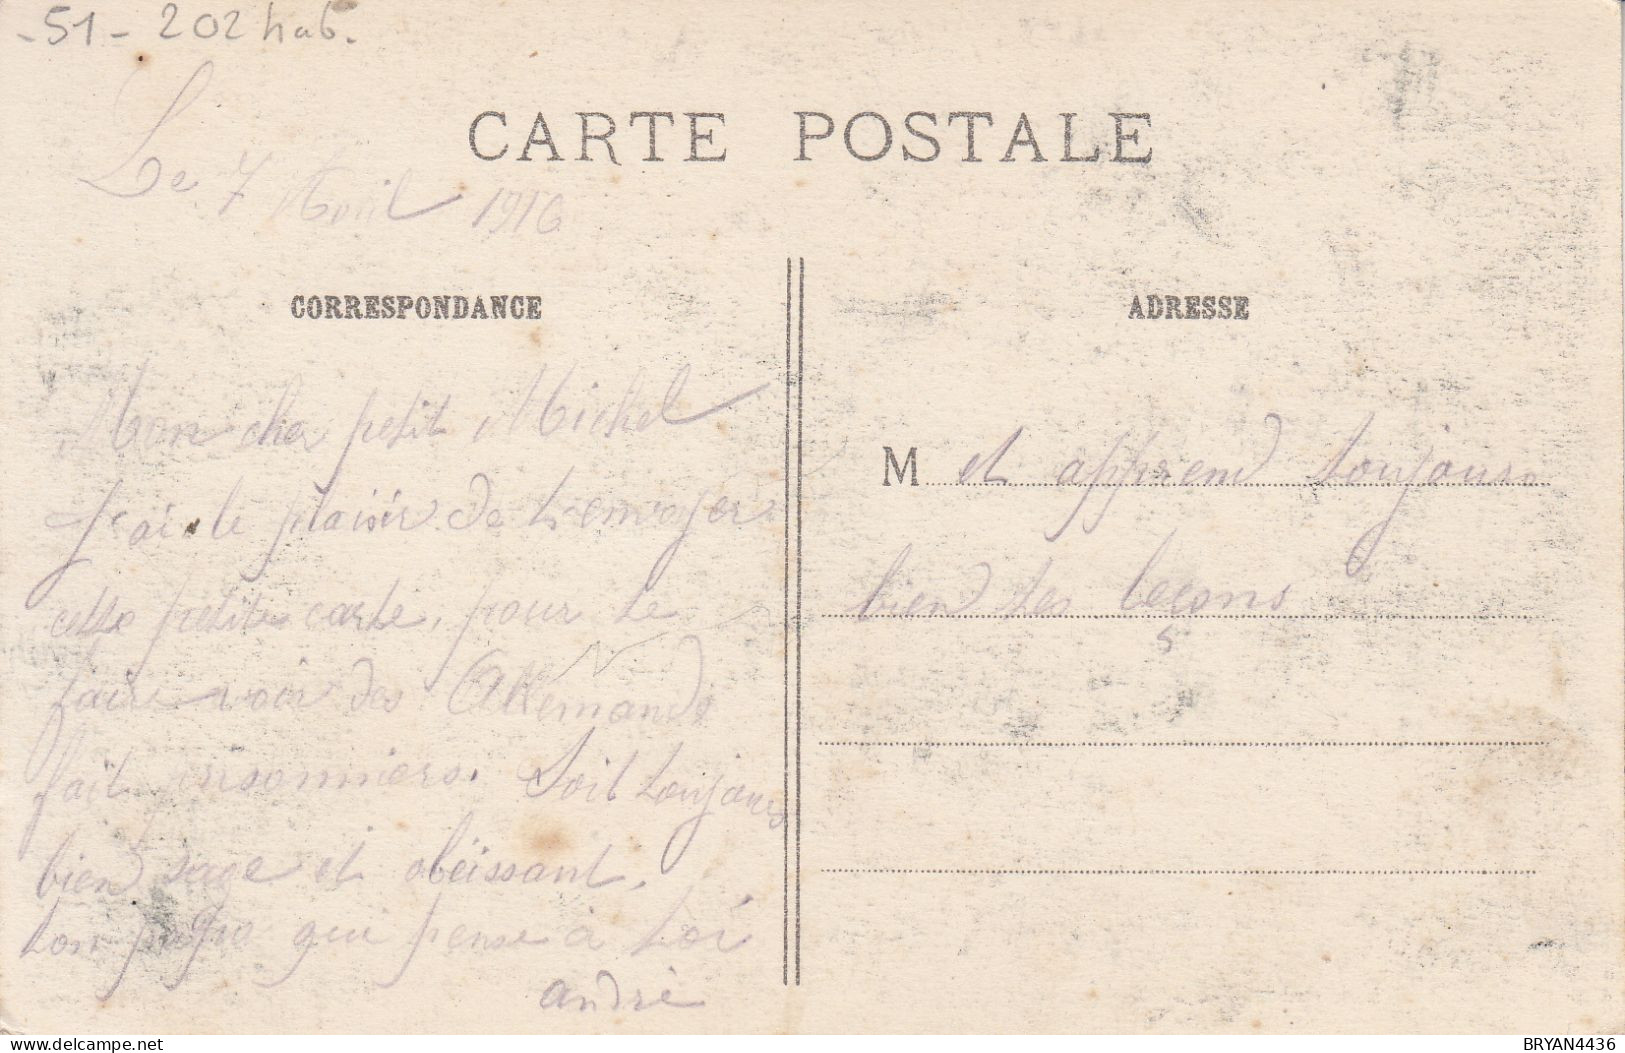 -51- 202 hab.
CARTE POSTALE
Le 7 Avril 1916
CORRESPONDANCE
Mon cher petit Michel
j'ai le plaisir de t'envoyer
cette petite carte, pour te
faire voir des Allemands
fait prisonniers. Soit toujours
bien sage et obéissant.
ton papa qui pense à toi
andré
ADRESSE
M et apprend toujours
bien tes leçons
delcampe.net
BRYAN4436